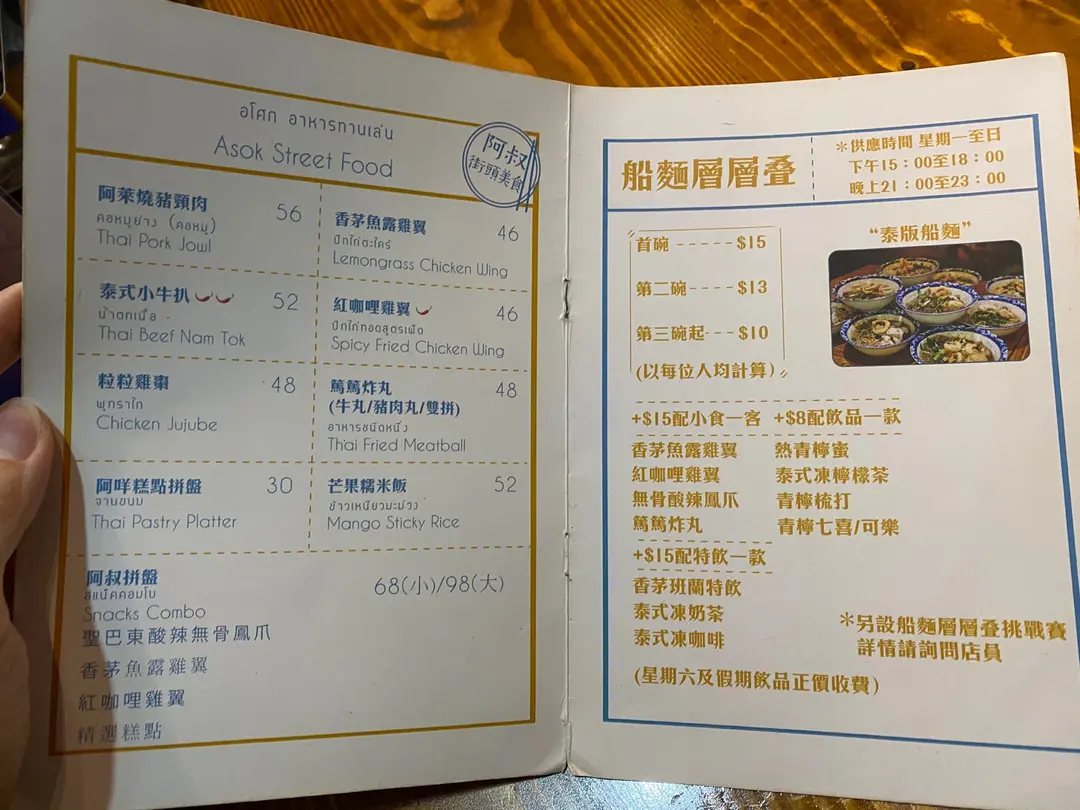 อโศก อาหารทานเล่น
Asok Street Food
阿叔
街頭美食
阿萊燒豬頸肉 56
คอหมูย่าง (คอหมู)
Thai Pork Jowl
香茅魚露雞翼 46
ปีกไก่ตะไคร้
Lemongrass Chicken Wing
泰式小牛扒 52
น้ำตกเนื้อ
Thai Beef Nam Tok
紅咖哩雞翼 46
ปีกไก่ทอดสูตรเผ็ด
Spicy Fried Chicken Wing
粒粒雞棗 48
พุทราไก่
Chicken Jujube
篤篤炸丸 48
(牛丸/豬肉丸/雙拼)
อาหารชนิดหนึ่ง
Thai Fried Meatball
阿咩糕點拼盤 30
จานขนม
Thai Pastry Platter
芒果糯米飯 52
ข้าวเหนียวมะม่วง
Mango Sticky Rice
阿叔拼盤 68(小)/98(大)
สแน็คคอมโบ
Snacks Combo
聖巴東酸辣無骨鳳爪
香茅魚露雞翼
紅咖哩雞翼
精選糕點
船麵層層叠
＊供應時間 星期一至日
下午15：00至18：00
晚上21：00至23：00
首碗 -----$15
第二碗----$13
第三碗起---$10
(以每位人均計算)
“泰版船麵”
+$15配小食一客 +$8配飲品一款
香茅魚露雞翼 熱青檸蜜
紅咖哩雞翼 泰式凍檸檬茶
無骨酸辣鳳爪 青檸梳打
篤篤炸丸 青檸七喜/可樂
+$15配特飲一款
香茅班蘭特飲
泰式凍奶茶
泰式凍咖啡
＊另設船麵層層叠挑戰賽
詳情請詢問店員
(星期六及假期飲品正價收費)